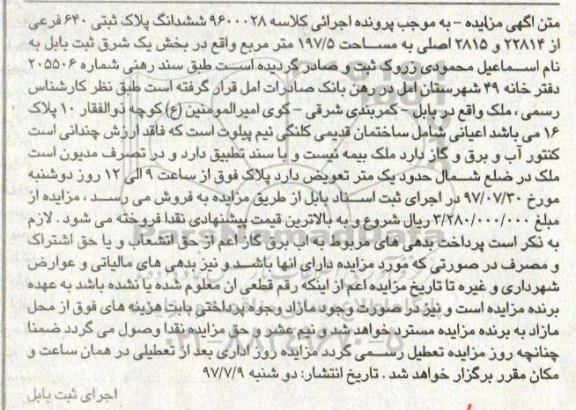 متن آگهی مزایده - به موجب پرونده اجرائی کلاسه ۹۶۰۰۰۲۸ ششدانگ پلاک ثبتی ۶۴۰ فرعی
از ۲۲۸۱۴ و ۲۸۱۵ اصلی به مساحت ۱۹۷/۵ متر مربع واقع در بخش یک شرق ثبت بابل به
نام اسماعیل محمودی زروک ثبت و صادر گردیده است طبق سند رهنی شماره ۲۰۵۵۰۶
دفتر خانه ۴۹ شهرستان امل در رهن بانک صادرات امل قرار گرفته است طبق نظر کارشناس
رسمی ، ملک واقع در بابل - کمربندی شرقی - کوی امیرالمومنین (ع) کوچه ذوالفقار ۱۰ پلاک
۱۶ می باشد اعیانی شامل ساختمان قدیمی کلنگی نیم پیلوت است که فاقد ارزش چندانی است
کنتور آب و برق و گاز دارد ملک بیمه نیست و با سند تطبیق دارد و در تصرف مدیون است
ملک در ضلع شمال حدود یک متر تعویض دارد پلاک فوق از ساعت ۹ الی ۱۲ روز دوشنبه
مورخ ۹۷/۰۷/۳۰ در اجرای ثبت اسناد بابل از طریق مزایده به فروش می رسد ، مزایده از
مبلغ ۲/۲۸۰/۰۰۰/۰۰۰ ریال شروع و به بالاترین قیمت پیشنهادی نقدا فروخته می شود . لازم
به ذکر است پرداخت بدهی های مربوط به اب برق گاز اعم از حق انشعاب و یا حق اشتراک
و مصرف در صورتی که مورد مزایده دارای انها باشد و نیز بدهی های مالیاتی و عوارض
شهرداری و غیره تا تاریخ مزایده اعم از اینکه رقم قطعی ان معلوم شده یا نشده باشد به عهده
برنده مزایده است و نیز در صورت وجود مازاد وجوه پرداختی بابت هزینه های فوق از محل
مازاد به برنده مزایده مسترد خواهد شد و نیم عشر و حق مزایده نقدا وصول می گردد ضمنا
چنانچه روز مزایده تعطیل رسمی گردد مزایده روز اداری بعد از تعطیلی در همان ساعت و
مکان مقرر برگزار خواهد شد . تاریخ انتشار: دو شنبه ۹۷/۷/۹
اجرای ثبت بابل